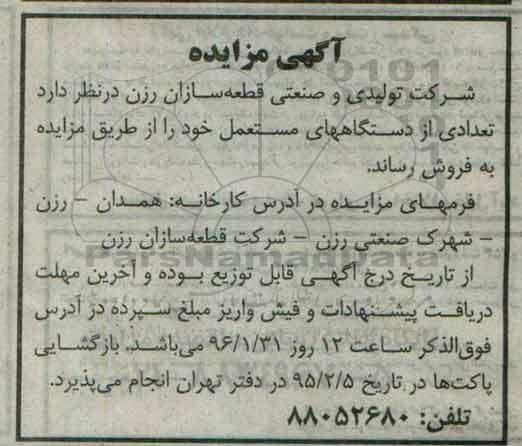 آگهی مزایده
شرکت تولیدی و صنعتی قطعه‌سازان رزن درنظر دارد
تعدادی از دستگاههای مستعمل خود را از طریق مزایده
به فروش رساند.
فرمهای مزایده در آدرس کارخانه: همدان - رزن
- شهرک صنعتی رزن - شرکت قطعه‌سازان رزن
از تاریخ درج آگهی قابل توزیع بوده و آخرین مهلت
دریافت پیشنهادات و فیش واریز مبلغ سپرده در آدرس
فوق‌الذکر ساعت ۱۲ روز ۹۶/۱/۳۱ می‌باشد. بازگشایی
پاکت‌ها در تاریخ ۹۵/۲/۵ در دفتر تهران انجام می‌پذیرد.
تلفن: ۸۸۰۵۲۶۸۰
ParsNamadData